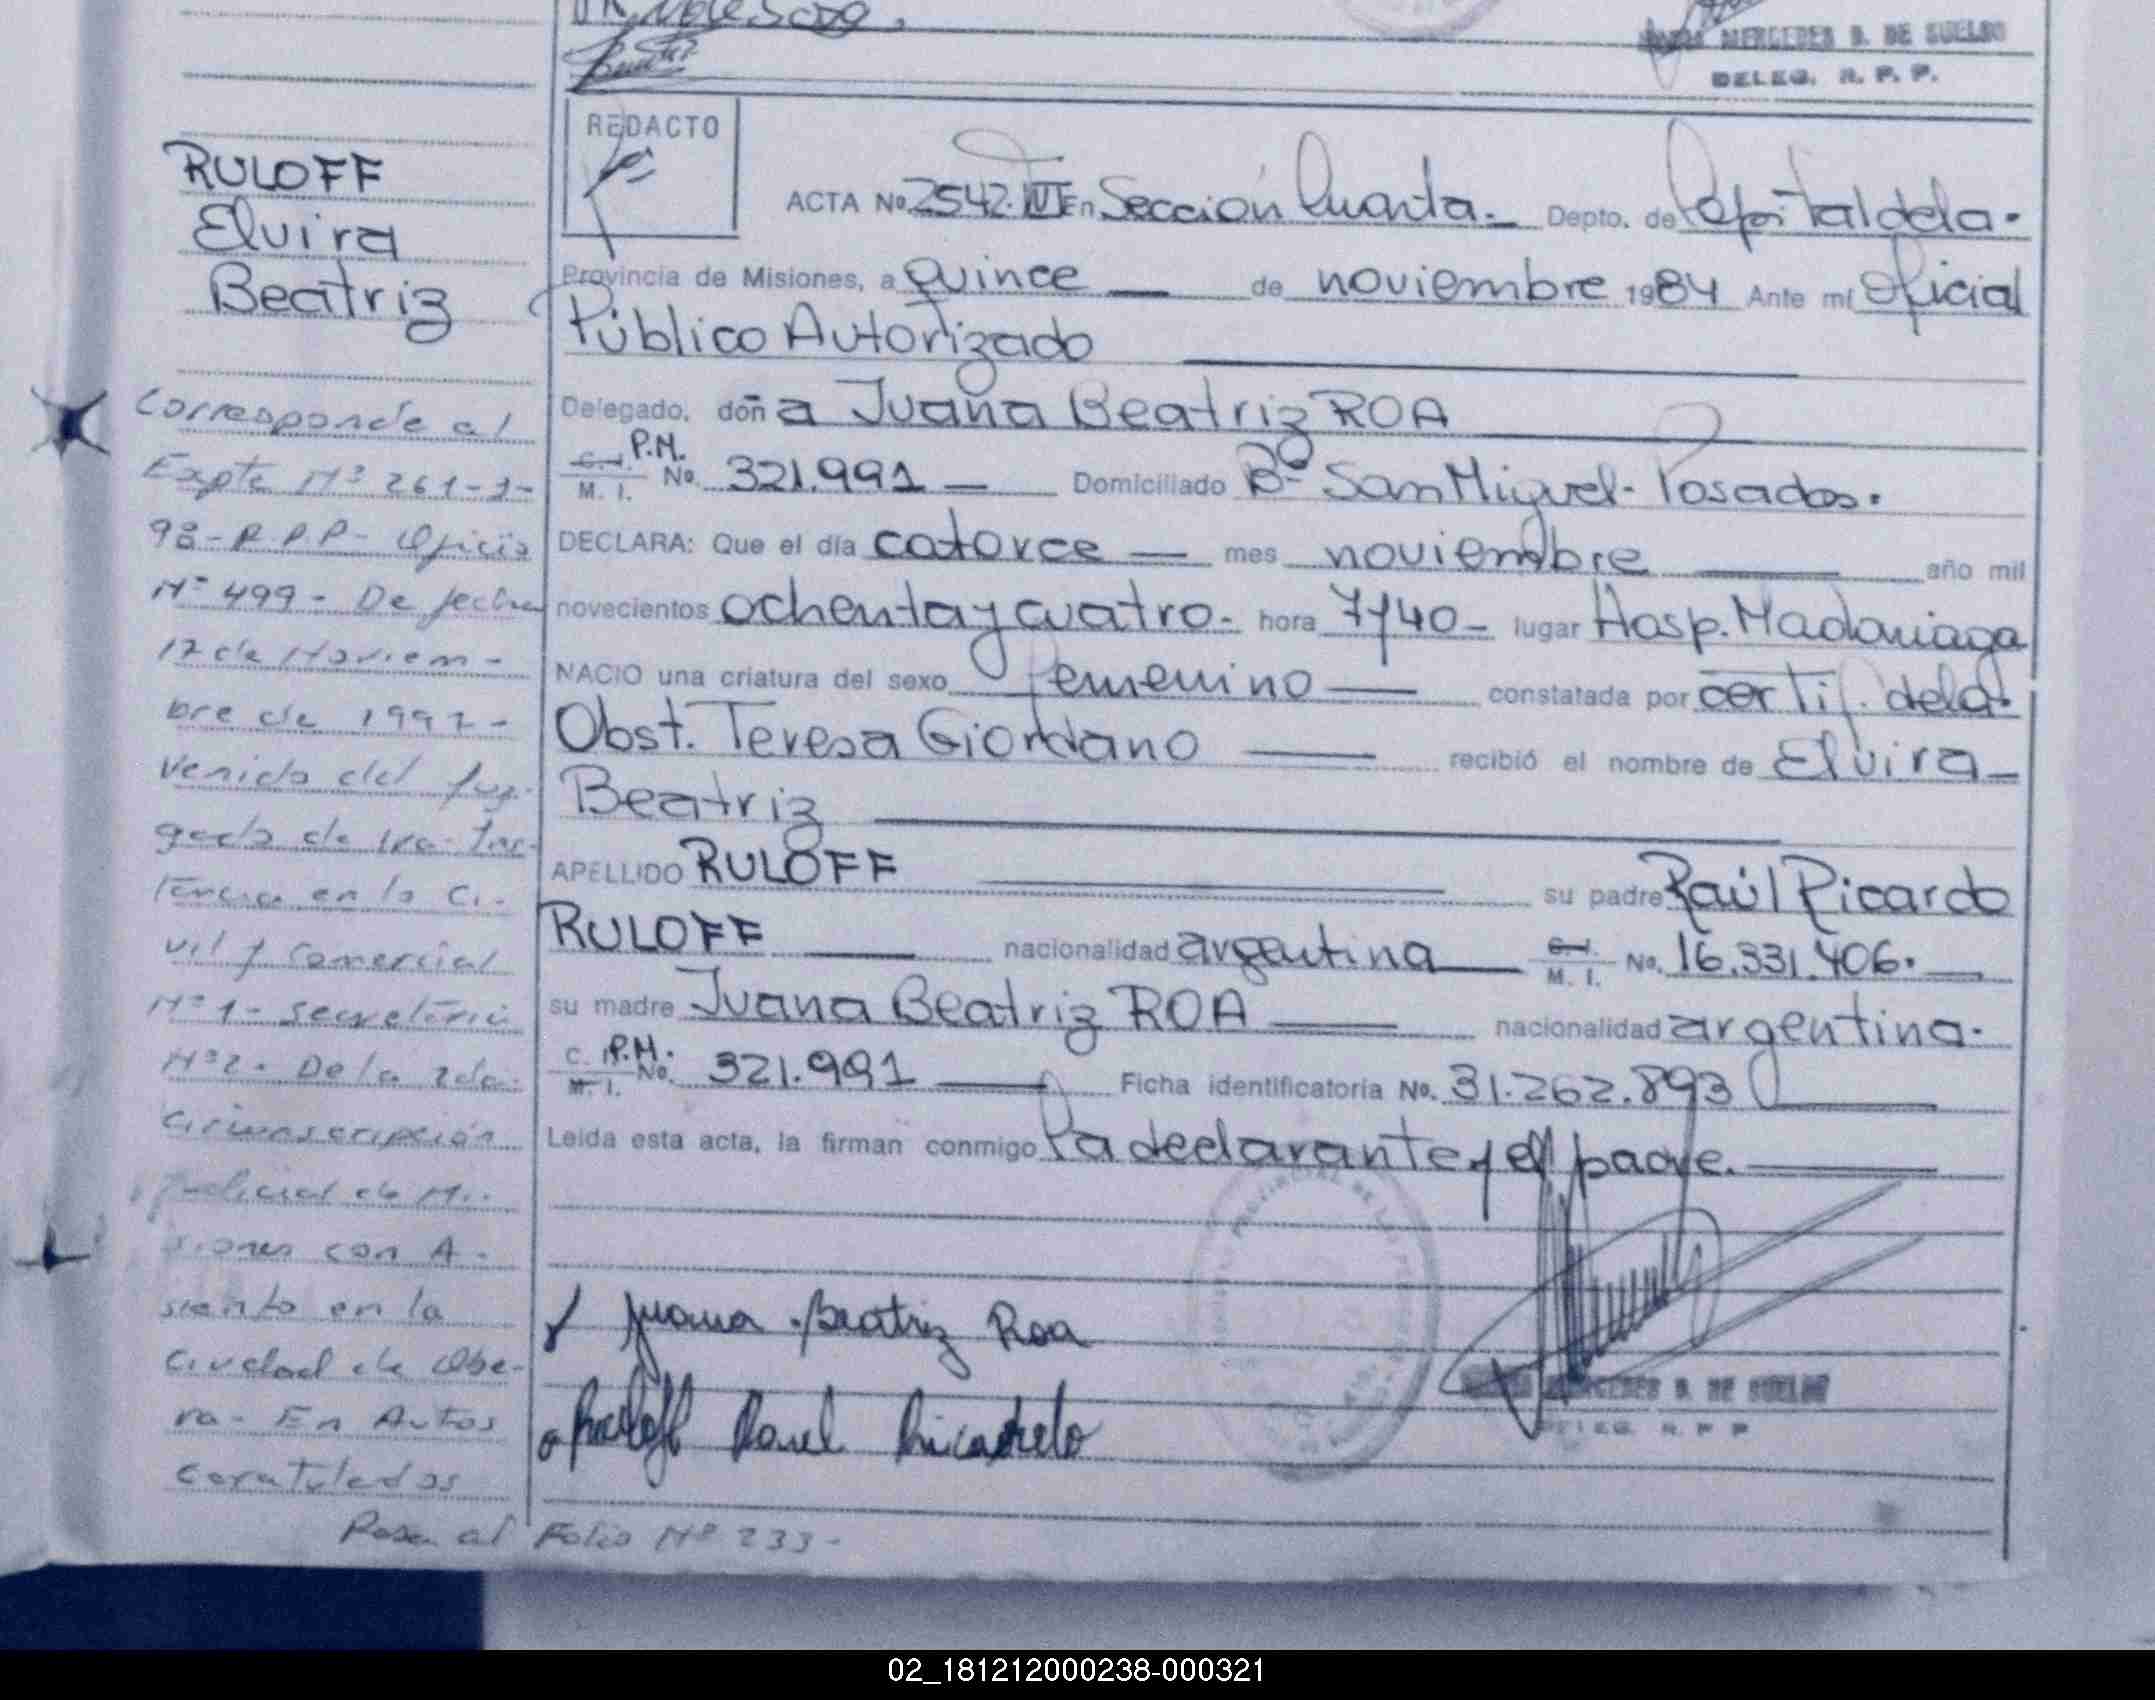 MERCEDES B. DE SUELDO
DELEG. R. P. P.
REDACTO
RULOFF
Elvira
Beatriz
ACTA No 2542. IVT En Sección Cuarta. Depto. de Capital de la.
Provincia de Misiones, a quince de noviembre 1984 Ante mí Oficial
Público Autorizado
Delegado, doñ a Juana Beatriz ROA
C. I. P.M.
M. I. No. 321.991 Domiciliado Bº San Miguel- Posadas.
DECLARA: Que el día catorce mes noviembre año mil
novecientos ochenta y cuatro. hora 7y40 lugar Hosp. Madariaga
NACIO una criatura del sexo femenino constatada por certif. de la
Obst. Teresa Giordano recibió el nombre de Elvira
Beatriz
APELLIDO RULOFF su padre Raúl Ricardo
RULOFF nacionalidad argentina C. I. M. I. No. 16.331.406.
su madre Juana Beatriz ROA nacionalidad argentina.
C. I. P.M.
M. I. No. 321.991 Ficha identificatoria No. 31.262.893
Leída esta acta, la firman conmigo la declarante y el padre.
Juana Beatriz Roa
Ruloff Raul Ricardo
MERCEDES B. DE SUELDO
DELEG. R. P. P.
Corresponde al
Expte Nº 261-J-
98-R.P.P- Oficio
Nº 499- De fecha
17 de Noviem-
bre de 1997-
Venido del Juz-
gado de 1ra. Ins-
tancia en lo Ci-
vil y Comercial
Nº 1- Secretaria
Nº 2. De la 2da.
Circunscripción
Judicial de Mi-
siones con A-
siento en la
Ciudad de Obe-
ra- En Autos
Caratulados
Pasa al Folio Nº 233-
02_181212000238-000321